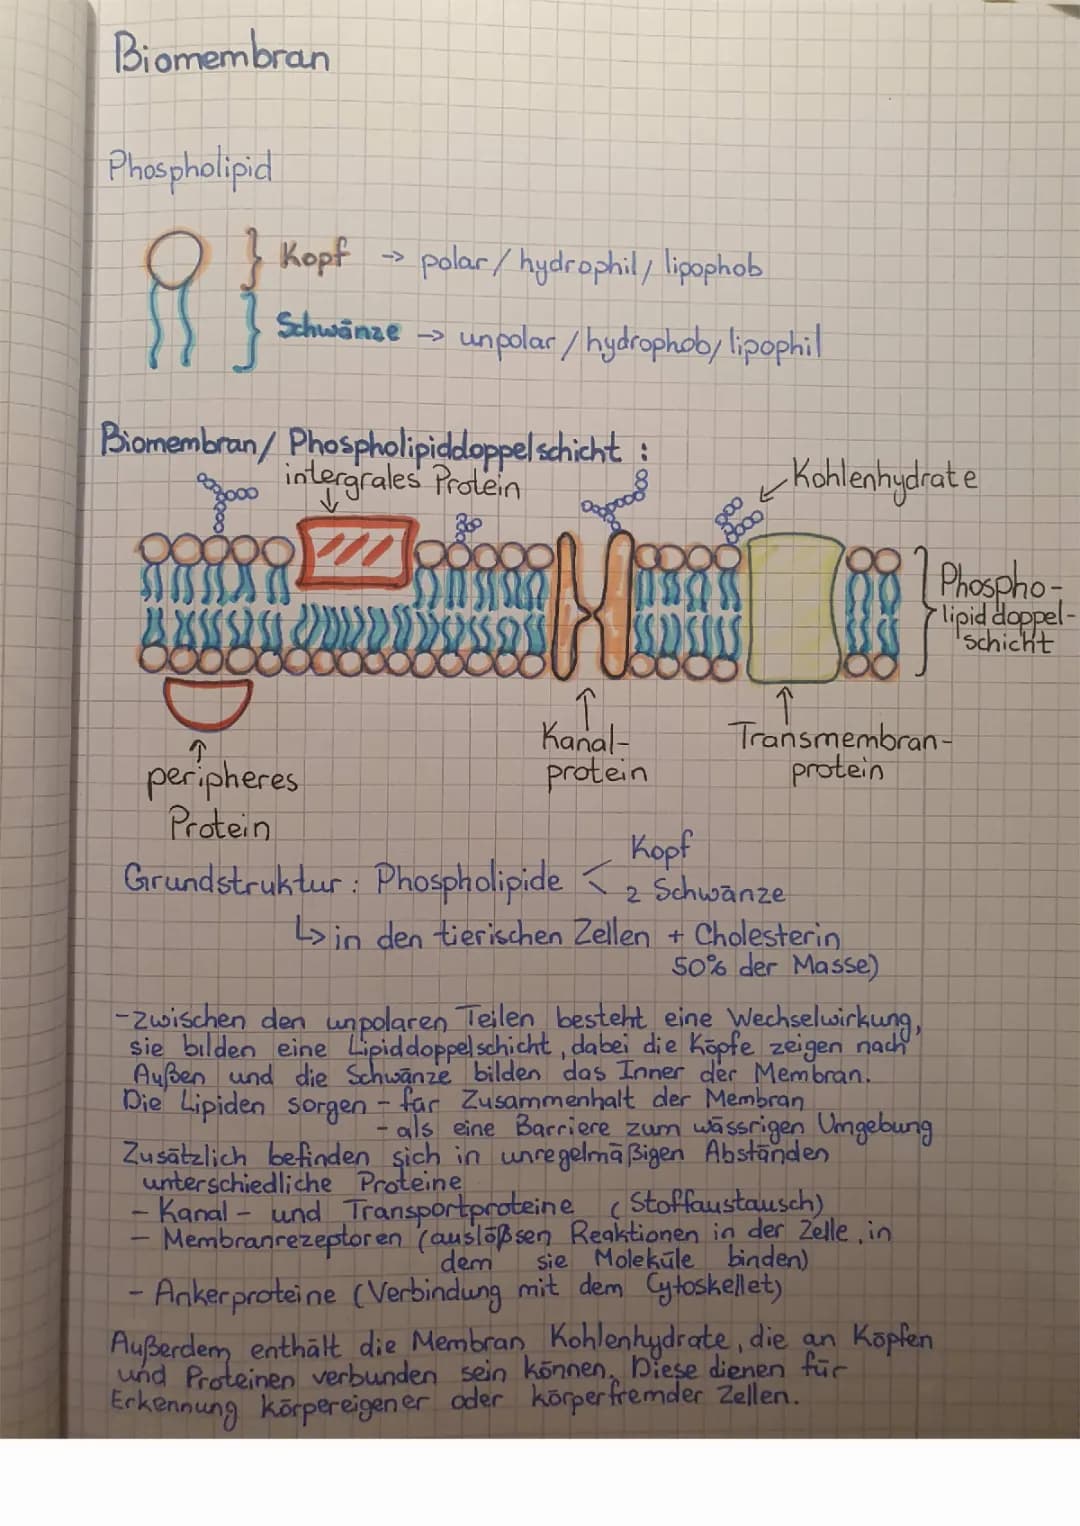 Biomembran
Phospholipid
Kopf → polar / hydrophil / lipophob
Schwänze → unpolar / hydrophob / lipophil
Biomembran / Phospholipiddoppelschicht :
intergrales Protein
Kohlenhydrate
Phospho-
lipiddoppel-
schicht
peripheres
Protein
Kanal-
protein
Transmembran-
protein
Grundstruktur : Phospholipide < Kopf
2 Schwänze
↳ in den tierischen Zellen + Cholesterin
50% der Masse)
- zwischen den unpolaren Teilen besteht eine Wechselwirkung,
sie bilden eine Lipiddoppelschicht, dabei die Köpfe zeigen nach
Außen und die Schwänze bilden das Inner der Membran.
Die Lipiden sorgen - für Zusammenhalt der Membran
- als eine Barriere zum wässrigen Umgebung
Zusätzlich befinden sich in unregelmäßigen Abständen
unterschiedliche Proteine
- Kanal - und Transportproteine (Stoffaustausch)
- Membranrezeptoren (auslößsen Reaktionen in der Zelle, in
dem sie Moleküle binden)
- Ankerproteine (Verbindung mit dem Cytoskellet)
Außerdem enthält die Membran Kohlenhydrate, die an Köpfen
und Proteinen verbunden sein können. Diese dienen für
Erkennung körpereigener oder körperfremder Zellen.